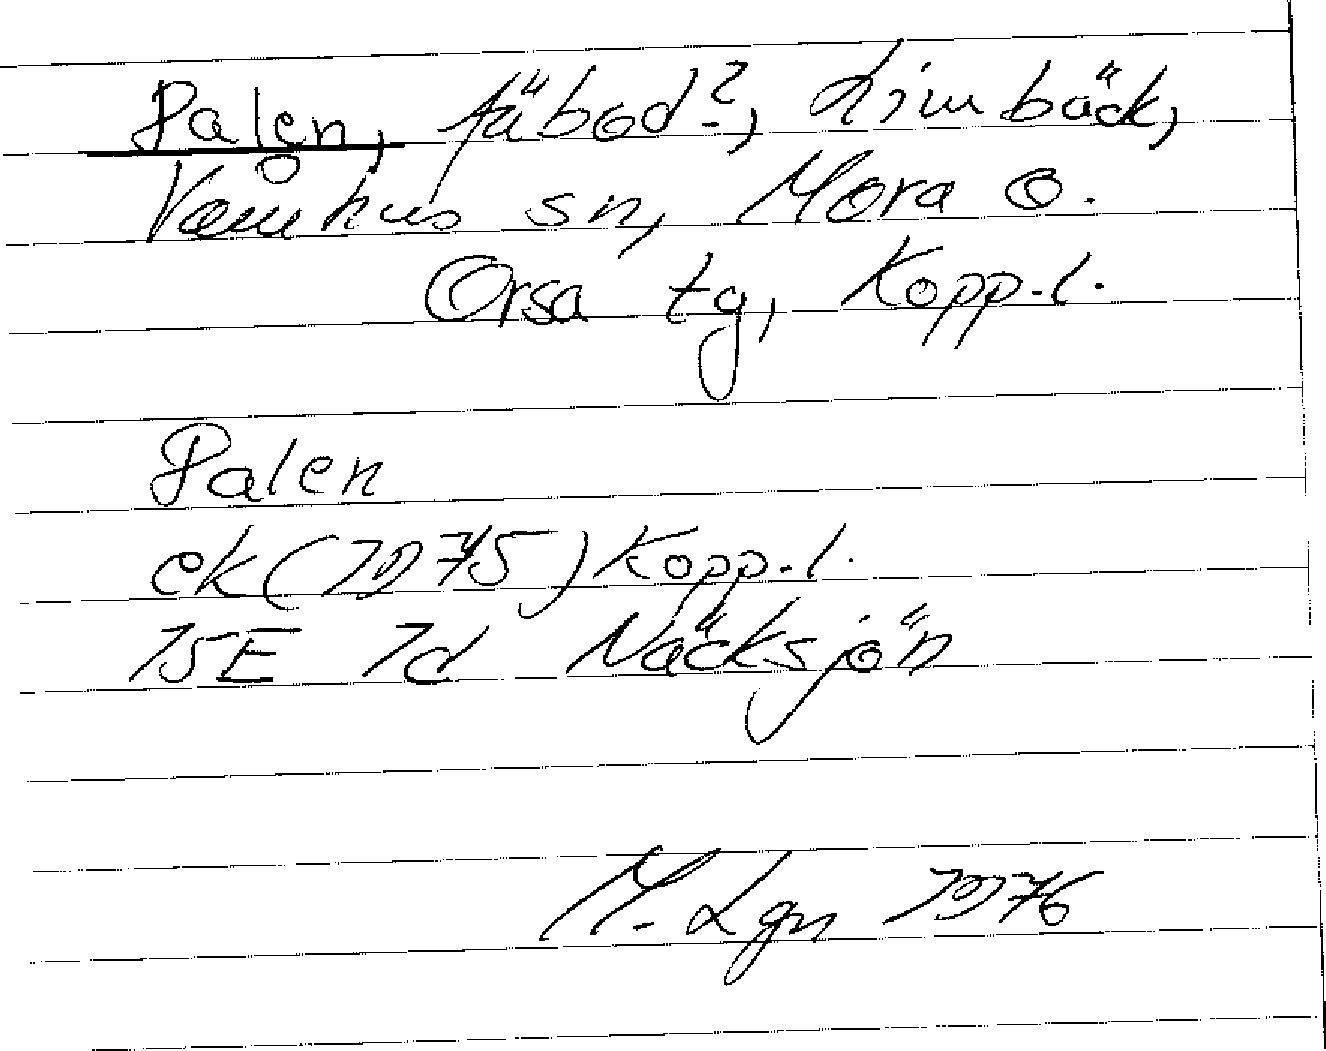 Palen, fäbod?, Limbäck,
Våmhus sn, Mora o.
Orsa tg, Kopp.l.
Palen
ek (1975) Kopp.l.
15E 1d Näcksjön
M. Lgn 1976